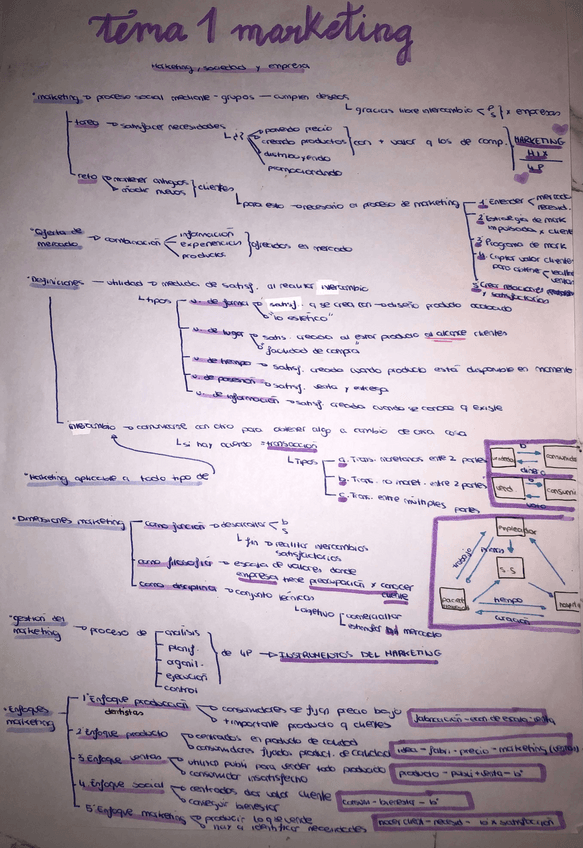 tema 1 marketing
Marketing, sociedad y empresa
marketing → proceso social mediante - grupos — cumplen deseos
gracias libre intercambio < P S } x empresas
tarea → satisfacer necesidades
poniendo precio
creando productos
distribuyendo
promocionando
con + valor q los de comp.
MARKETING
MIX
4P
reto → mantener antiguos
añadir nuevos
clientes
para esto → necesario el proceso de marketing
1. Entender < mercado
necesid.
2. Estrategia de mark
impulsada x cliente
3. Programa de mark
4. Captar valor cliente
5. Crear relaciones
y satisfactorias
Oferta de mercado → combinación
información
experiencias
productos
ofrecidos en mercado
Definiciones — utilidad → medida de satisf. al realizar intercambio
tipos
u. de forma → satisf. q se crea con → diseño producto acabado
"lo estético"
u. de lugar → satis. creada al estar producto al alcance clientes
facilidad de compra
u. de tiempo → satisf. creada cuando producto está disponible en momento
u. de posesión → satisf. venta y entrega
u. de información → satisf. creada cuando se conoce q existe
intercambio → comunicarse con otro para obtener algo a cambio de otra cosa
si hay acuerdo = transacción
Tipos
a. Trans. monetarias entre 2 partes
b. Trans. no monet. entre 2 partes
c. Trans. entre múltiples partes
b
dinero
Marketing aplicable a todo tipo de
Dimensiones marketing
como función → desarrollar < b s
fin → realizar intercambios
satisfactorios
como filosofía → escala de valores donde
empresa tiene preocupación x conocer
cliente
como disciplina → conjunto técnicas
objetivo
comercializar
mercado
empleador
trabajo
S.S
tiempo
curación
gestión del marketing → proceso de
análisis
planif.
organi.
ejecución
control
de 4P → INSTRUMENTOS DEL MARKETING
Enfoques marketing
1. Enfoque producción → consumidores se fijan precio bajo
dentistas
+ importante producto q clientes
2. Enfoque producto → centrados en producto de calidad
consumidores fijados product. de calidad
idea - fabri - precio - marketing (venta)
3. Enfoque ventas → utilizo publi para vender todo producido
consumidor insatisfecho
producto - publi + venta - bº
4. Enfoque social → centrados dar valor cliente
conseguir bienestar
5. Enfoque marketing → producir lo que vende
hay q identificar necesidades